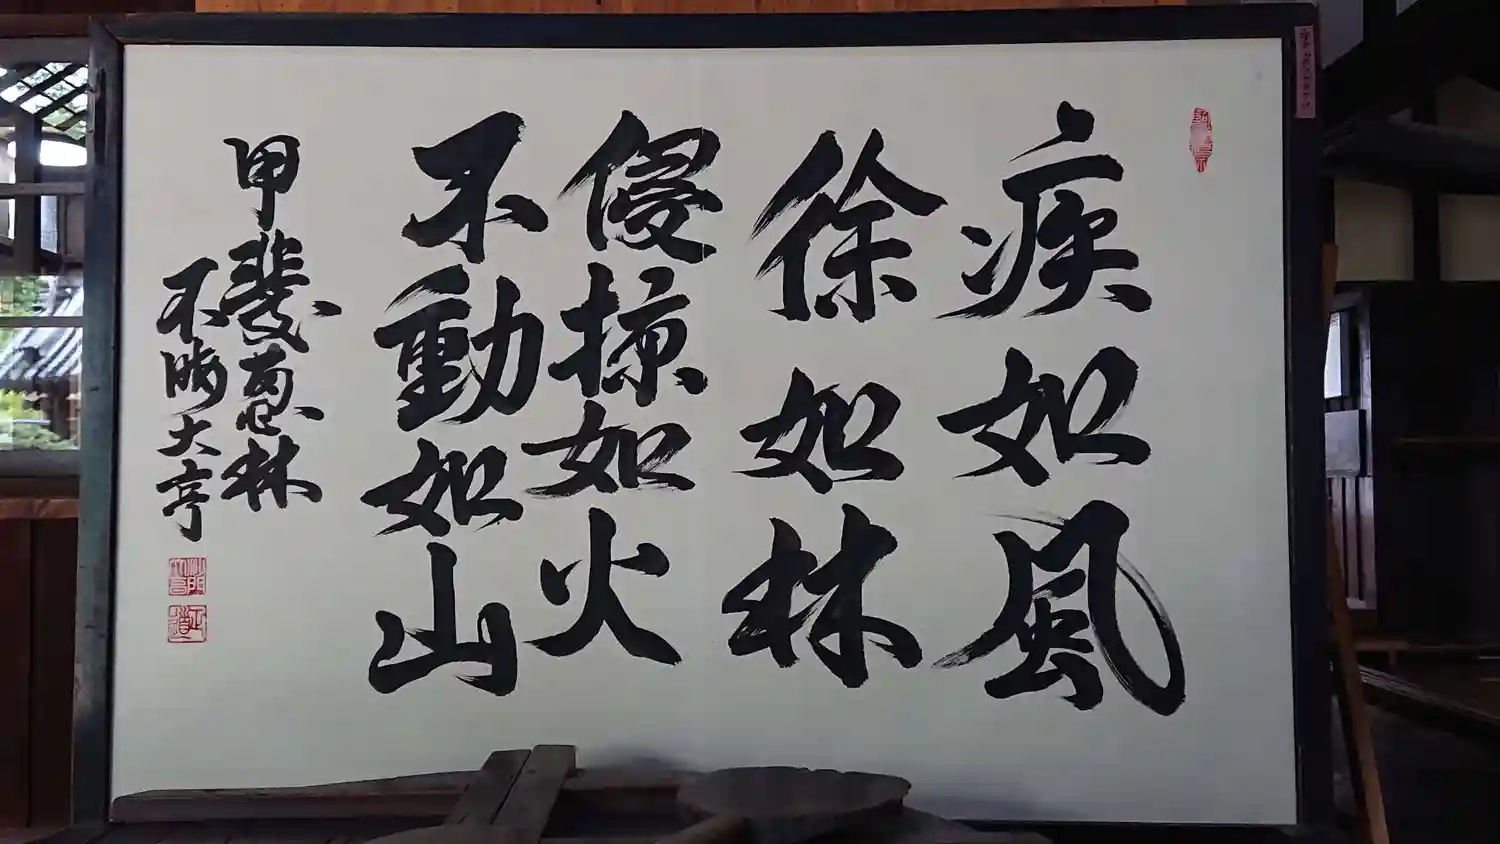 疾如風
徐如林
侵掠如火
不動如山
甲斐惠林
不晦大亨